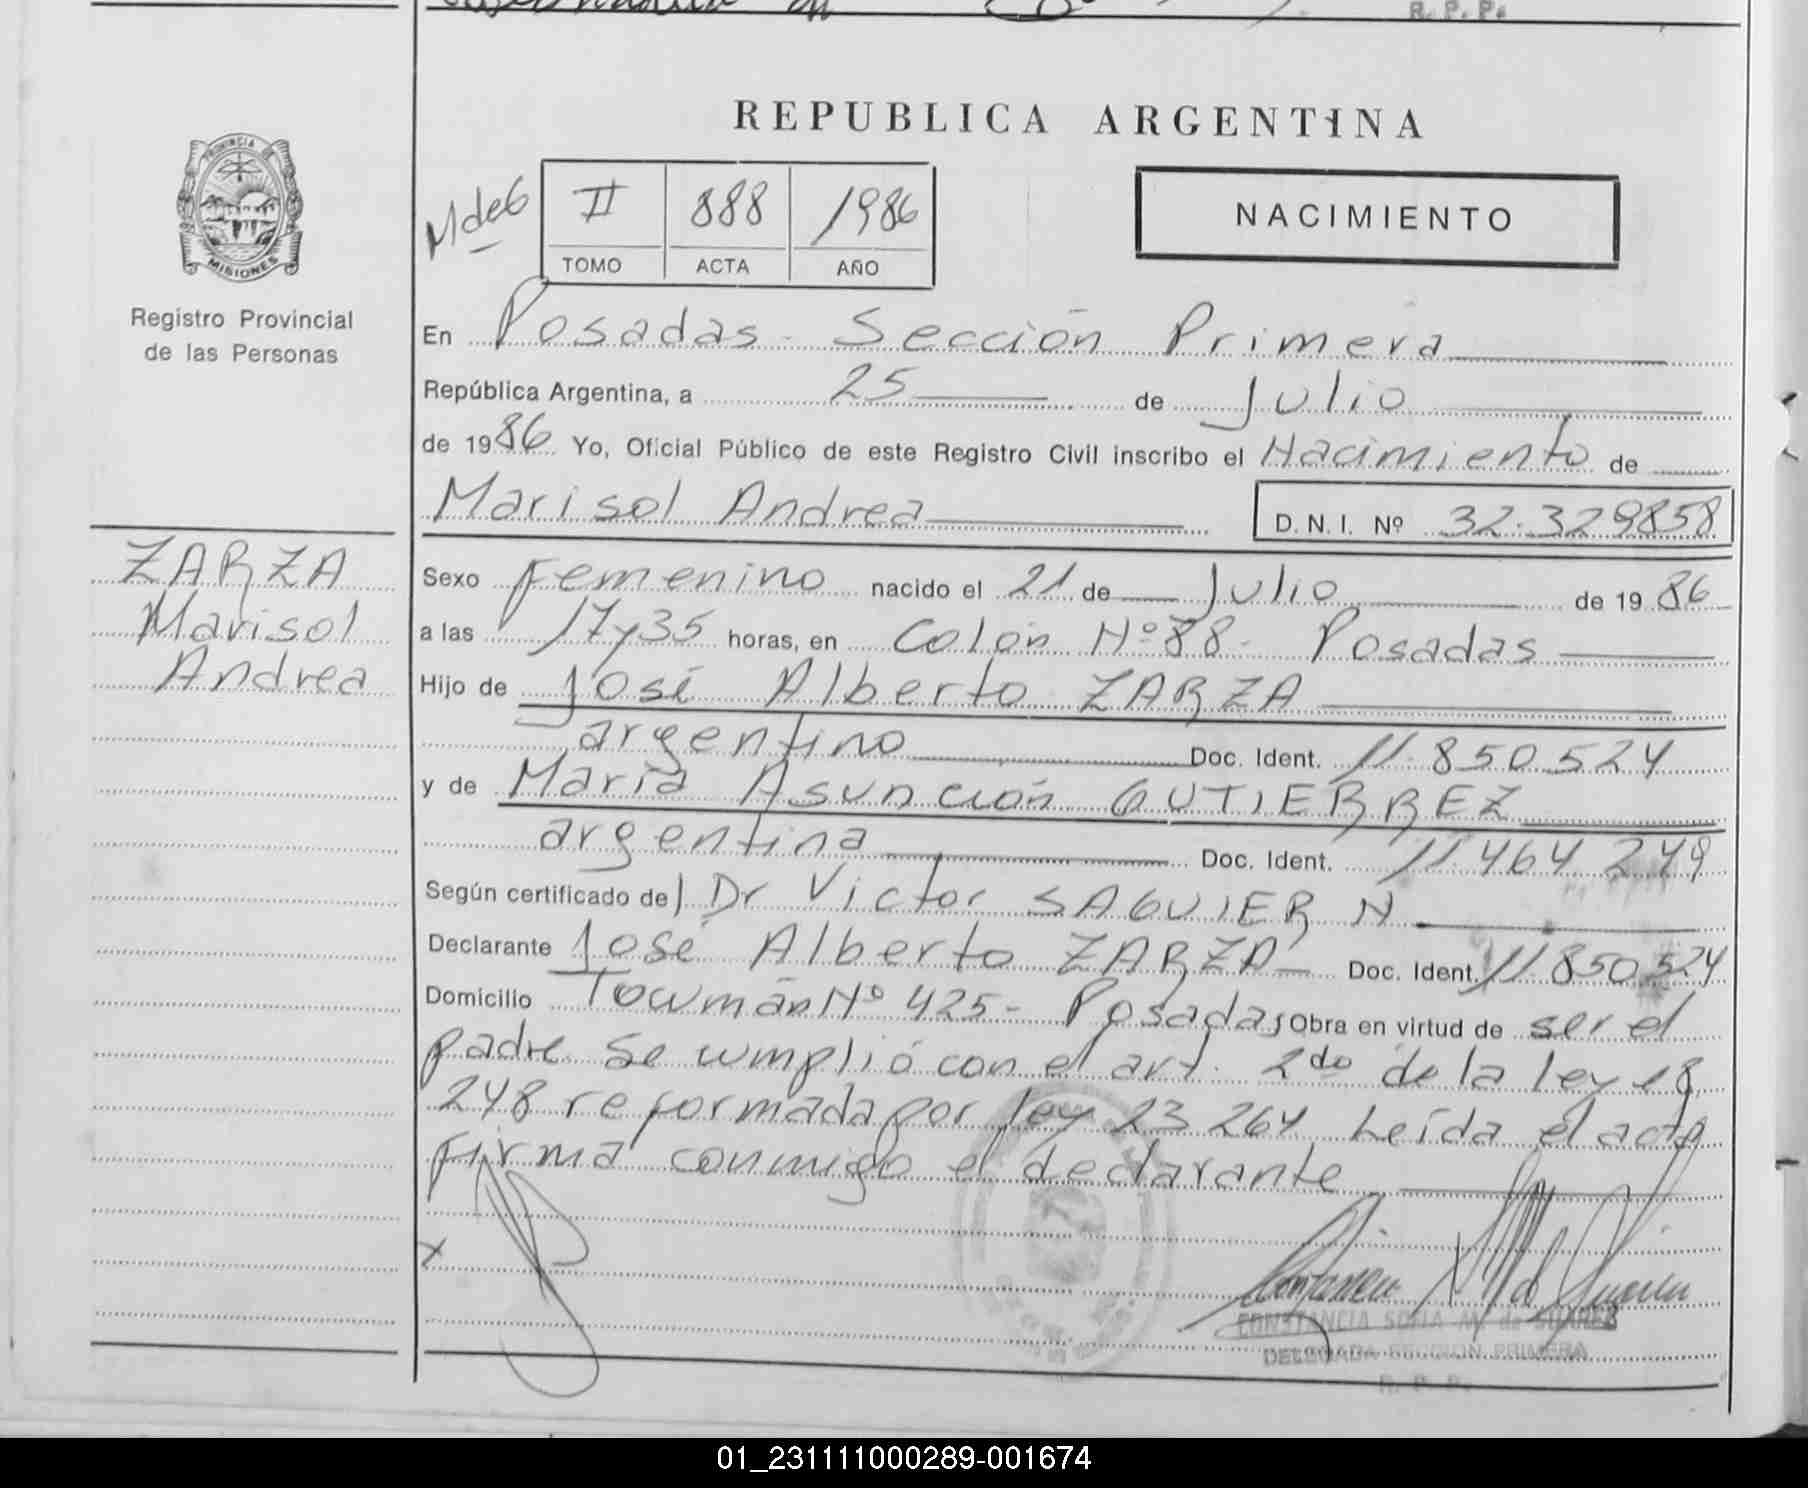 R. P. P.
REPUBLICA ARGENTINA
PROVINCIA DE
MISIONES
Registro Provincial
de las Personas
M de G
II 888 1986
TOMO ACTA AÑO
NACIMIENTO
En Posadas - Sección Primera
República Argentina, a 25 de Julio
de 1986 Yo, Oficial Público de este Registro Civil inscribo el Nacimiento de
Marisol Andrea D. N. I. Nº 32.329858
ZARZA
Marisol
Andrea
Sexo Femenino nacido el 21 de Julio de 1986
a las 17y35 horas, en Colón Nº 88 - Posadas
Hijo de José Alberto ZARZA
argentino Doc. Ident. 11.850.524
y de María Asunción GUTIERREZ
argentina Doc. Ident. 11.464 249
Según certificado del Dr Victor SAGUIER N
Declarante José Alberto ZARZA Doc. Ident. 11.850.524
Domicilio Tucumán Nº 425 - Posadas Obra en virtud de ser el
padre. Se cumplió con el art. 2do de la ley 18
248 reformada por ley 23 264 Leída el acta
firma conmigo el declarante
x
CONSTANCIA SOFIA M. de SUAREZ
DELEGADA SECCION PRIMERA
R. P. P.
01_231111000289-001674